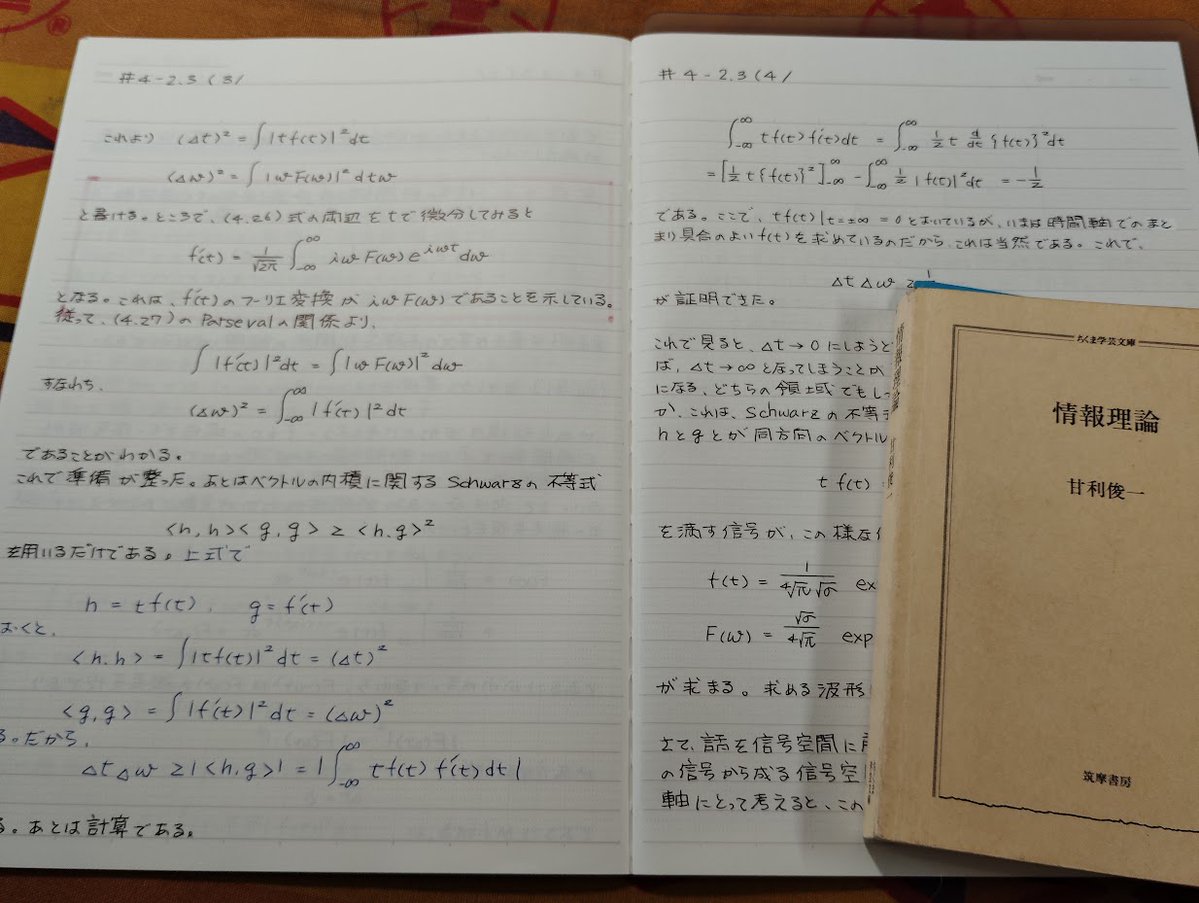 #4-2.3 (3/
これより (Δt)² = ∫|tf(t)|²dt
(Δw)² = ∫|wF(w)|²dtw
と書ける。ところで、(4.26)式の両辺をtで微分してみると
f'(t) = 1/√2π ∫_{-∞}^{∞} iwF(w)e^{iwt}dw
となる。これは、f'(t)のフーリエ変換が iwF(w)であることを示している。
従って、(4.27)のParsevalの関係より、
∫|f'(t)|²dt = ∫|wF(w)|²dw
すなわち、
(Δw)² = ∫_{-∞}^{∞}|f'(t)|²dt
であることがわかる。
これで準備が整った。あとはベクトルの内積に関するSchwarzの不等式
<h,h><g,g> ≥ <h.g>²
を用いるだけである。上式で
h = tf(t), g = f'(t)
おくと、
<h.h> = ∫|tf(t)|²dt = (Δt)²
<g,g> = ∫|f'(t)|²dt = (Δw)²
る。だから、
ΔtΔw ≥ |<h,g>| = |∫_{-∞}^{∞} tf(t)f'(t)dt|
る。あとは計算である。
#4-2.3 (4/
∫_{-∞}^{∞} tf(t)f'(t)dt = ∫_{-∞}^{∞} 1/2 t d/dt {f(t)}²dt
= [1/2 t{f(t)}²]_{-∞}^{∞} - ∫_{-∞}^{∞} 1/2 |f(t)|²dt = -1/2
である。ここで、tf(t)|t=±∞ = 0とおいているが、いまは時間軸でのまと
まり具合のよいf(t)を求めているのだから、これは当然である。これで、
ΔtΔw ≥ 1
が証明できた。
これで見ると、Δt→0にしようと
ば、Δt→∞となってしまうことが
になる、どちらの領域でもし
か、これは、Schwarzの不等式
hとgとが同方向のベクトル
tf(t) =
を満す信号が、この様な
f(t) = 1/⁴√π√σ ex
F(w) = √σ/⁴√π exp
が求まる。求める波形
さて、話を信号空間に
の信号から成る信号空
軸にとって考えると、この
情報理論
甘利俊一
ちくま学芸文庫
情報理論
甘利俊一
筑摩書房